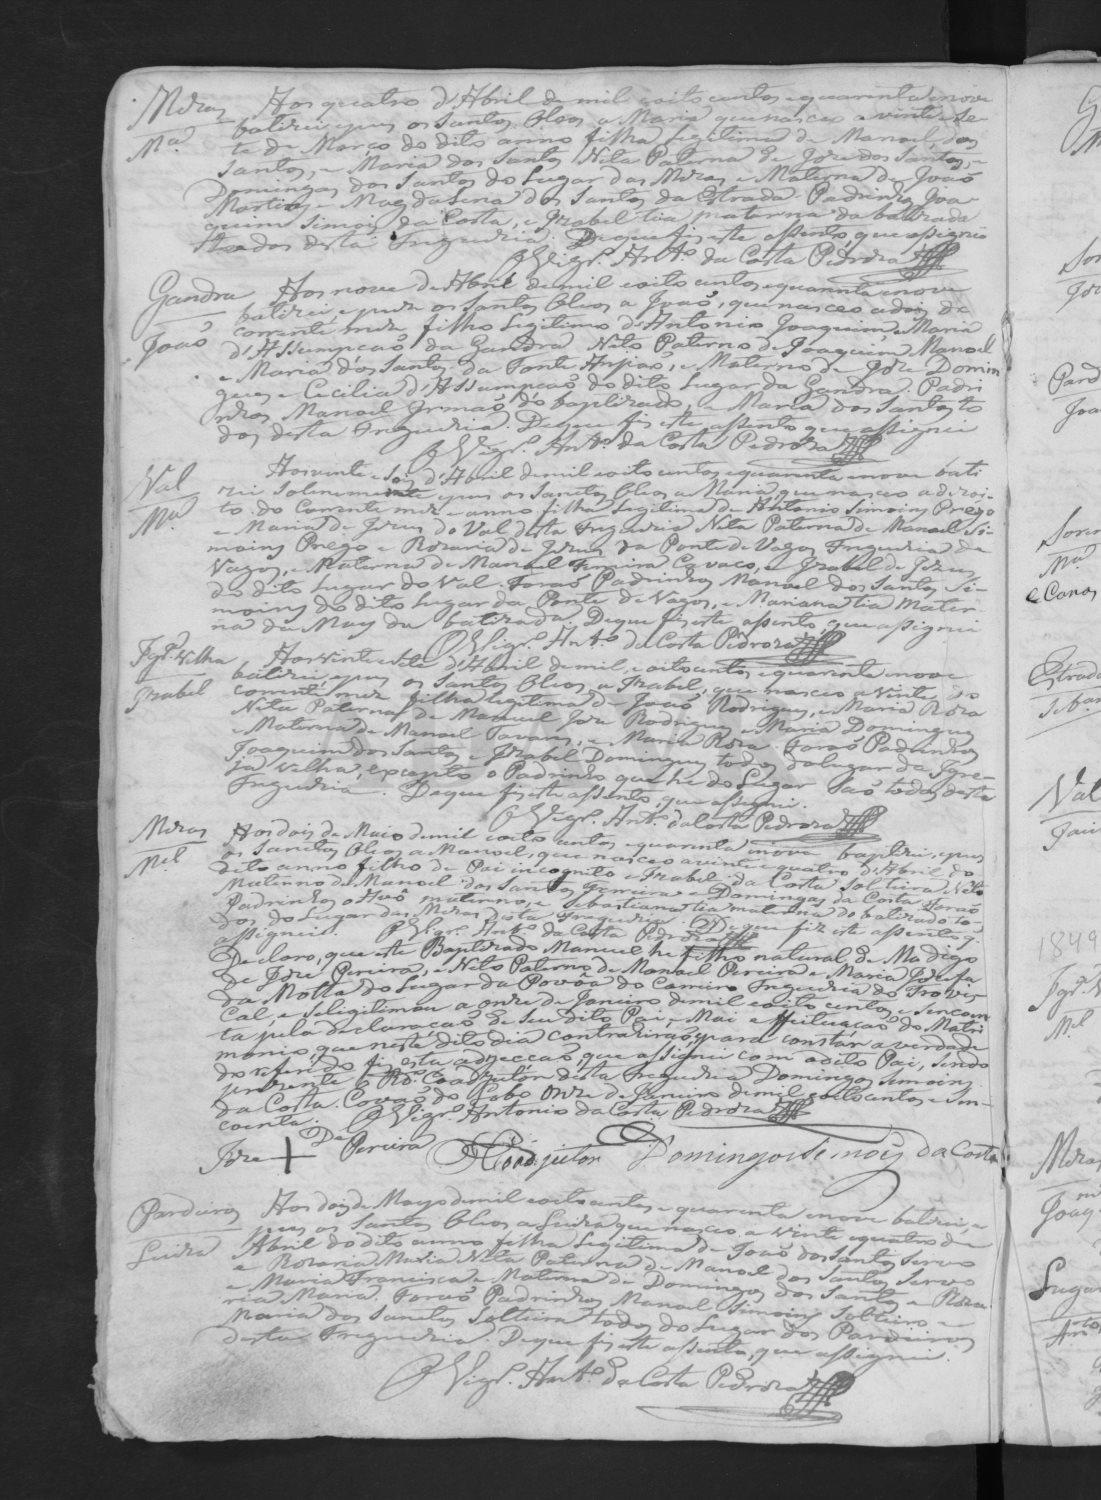 Mezas
Mª
Aos quatro d'Abril de mil oito centos e quarenta e nove
batizei e pus os Santos Oleos a Maria que nasceo a vinte e se-
te de Março do dito anno filha legitima de Manoel dos
Santos, e Maria dos Santos Neta Paterna de Joze dos Santos, e
Domingas dos Santos do Lugar das Mezas e Materna de João
Martins e Magdalena dos Santos da Estrada. Padrinhos Joa-
quim Simois da Costa, e Izabel tia paterna da batizada
todos desta Freguezia. De que fiz este assento, que assignei
O Vigrº. Antº. da Costa Pedroza
Gandra
João
Aos nove de Abril de mil e oito centos e quarenta e nove
batizei e puz os Santos Oleos a João, que nasceo a dois de
corrente mez, filho Legitimo d'Antonio Joaquim e Maria
d'Assumpcaõ da Gandra. Neto Paterno de Joaquim Manoel
e Maria dos Santos da Fonte Anjiaõ, e Materno de Joze Domin
gues e Cecilia d'Assumpcaõ do dito Lugar da Gandra. Padri
nhos Manoel Irmaõ do baptizado, e Maria dos Santos to
dos desta Freguezia. De que fiz este assento que assignei
O Vigrº. Antº. da Costa Pedroza
Val
Mª
Aos vinte e seis d'Abril de mil e oito centos e quarenta e nove bati
zei solenemente e pus os Santos Oleos a Maria, que nasceo a dezoi-
to do Corrente mez e anno filha Legitima de Antonio Simoins Prego
e Maria de Jezus do Val desta Freguezia Neta Paterna de Manoel Si-
moins Prego e Rozaria de Jezus da Ponte de Vagos Freguezia de
Vagos, e Materna de Manoel Ferreira Cavaco, e Izabel de Jezus
do dito Lugar do Val. Foraõ Padrinhos Manoel dos Santos Si-
moins do dito Lugar da Ponte de Vagos, e Mariana tia Mater-
na da May da batizada. De que fiz este assento, que assignei
O Vigrº. Antº. da Costa Pedroza
Igrª Velha
Izabel
Aos vinte e sete d'Abril de mil e oito centos e quarenta e nove
batizei, e pus os Santos Oleos a Izabel, que nasceo a vinte do
corrente mez filha legitima de João Rodrigues, e Maria Roza
Neta Paterna de Manuel Joze Rodrigues e Maria Domingues
e Materna de Manoel Tavares, e Maria Roza. Foraõ Padrinhos
Joaquim dos Santos e Izabel Domingues todos do lugar da Igre-
ja Velha, excepto o Padrinho que he do Lugar Saõ todos desta
Freguezia. De que fiz este assento, que assignei.
O Vigrº. Antº. da Costa Pedroza
Mezas
Mel
Aos dois de Maio de mil oito centos e quarenta e nove baptizei, e pus
os Sanctos Oleos a Manoel, que nasceo a vinte e quatro d'Abril do
dito anno filho de Pai incognito e Izabel da Costa Solteira Neto
Materno de Manoel dos Santos Ferreira e Domingas da Costa Foraõ
Padrinhos o Avô materno, e Sebastiana tia materna do batizado to-
dos do Lugar das Mezas desta Freguezia. De que fiz este assento, q.
assignei. O Vigrº. Antº. da Costa Pedroza
Declaro, que este Baptizado Manuel he filho natural de Madigo
de Joze Pereira, e Neto Paterno de Manoel Pereira e Maria Jozefa
da Motta do Lugar da Povôa do Carneiro Freguezia do Trovis-
cal, e se legitimou a onze de Janeiro de mil e oito centos e sincoen
ta pela declaracaõ de seu dito Pai, e Mai e effeituacaõ do Matri
monio, que neste dito dia contrahiraõ, e para constar a verdade
do referido fiz esta adjeccaõ, que assignei com o dito Pai, sendo
prezente o Rdº. Coadjutor desta Freguezia Domingos Simoins
da Costa. Covaõ do Lobo onze de Janeiro de mil e oito centos e sin-
coenta. O Vigrº. Antonio da Costa Pedroza
Joze + De Pereira O Coadjutor Domingos Simoeis da Costa
Pardeiros
Luiza
Aos dois de Mayo de mil e oito centos e quarenta e nove batizei, e
pus os Santos Oleos a Luiza que nasceo a vinte e quatro de
Abril do dito anno filha Legitima de Joaõ dos Santos Servo
e Rozaria Maria Neta Paterna de Manoel dos Santos Servo
e Maria Francisca e Materna de Domingos dos Santos e Roza
ria Maria. Foraõ Padrinhos Manoel Simoins Solteiro e
Maria dos Santos Solteira todos do Lugar dos Pardeiros
desta Freguezia. De que fiz este assento, que assignei.
O Vigrº. Antº. da Costa Pedroza
1849